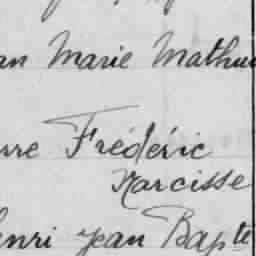 an Marie Mathu
rre Frédéric
Narcisse
enri Jean Bapte